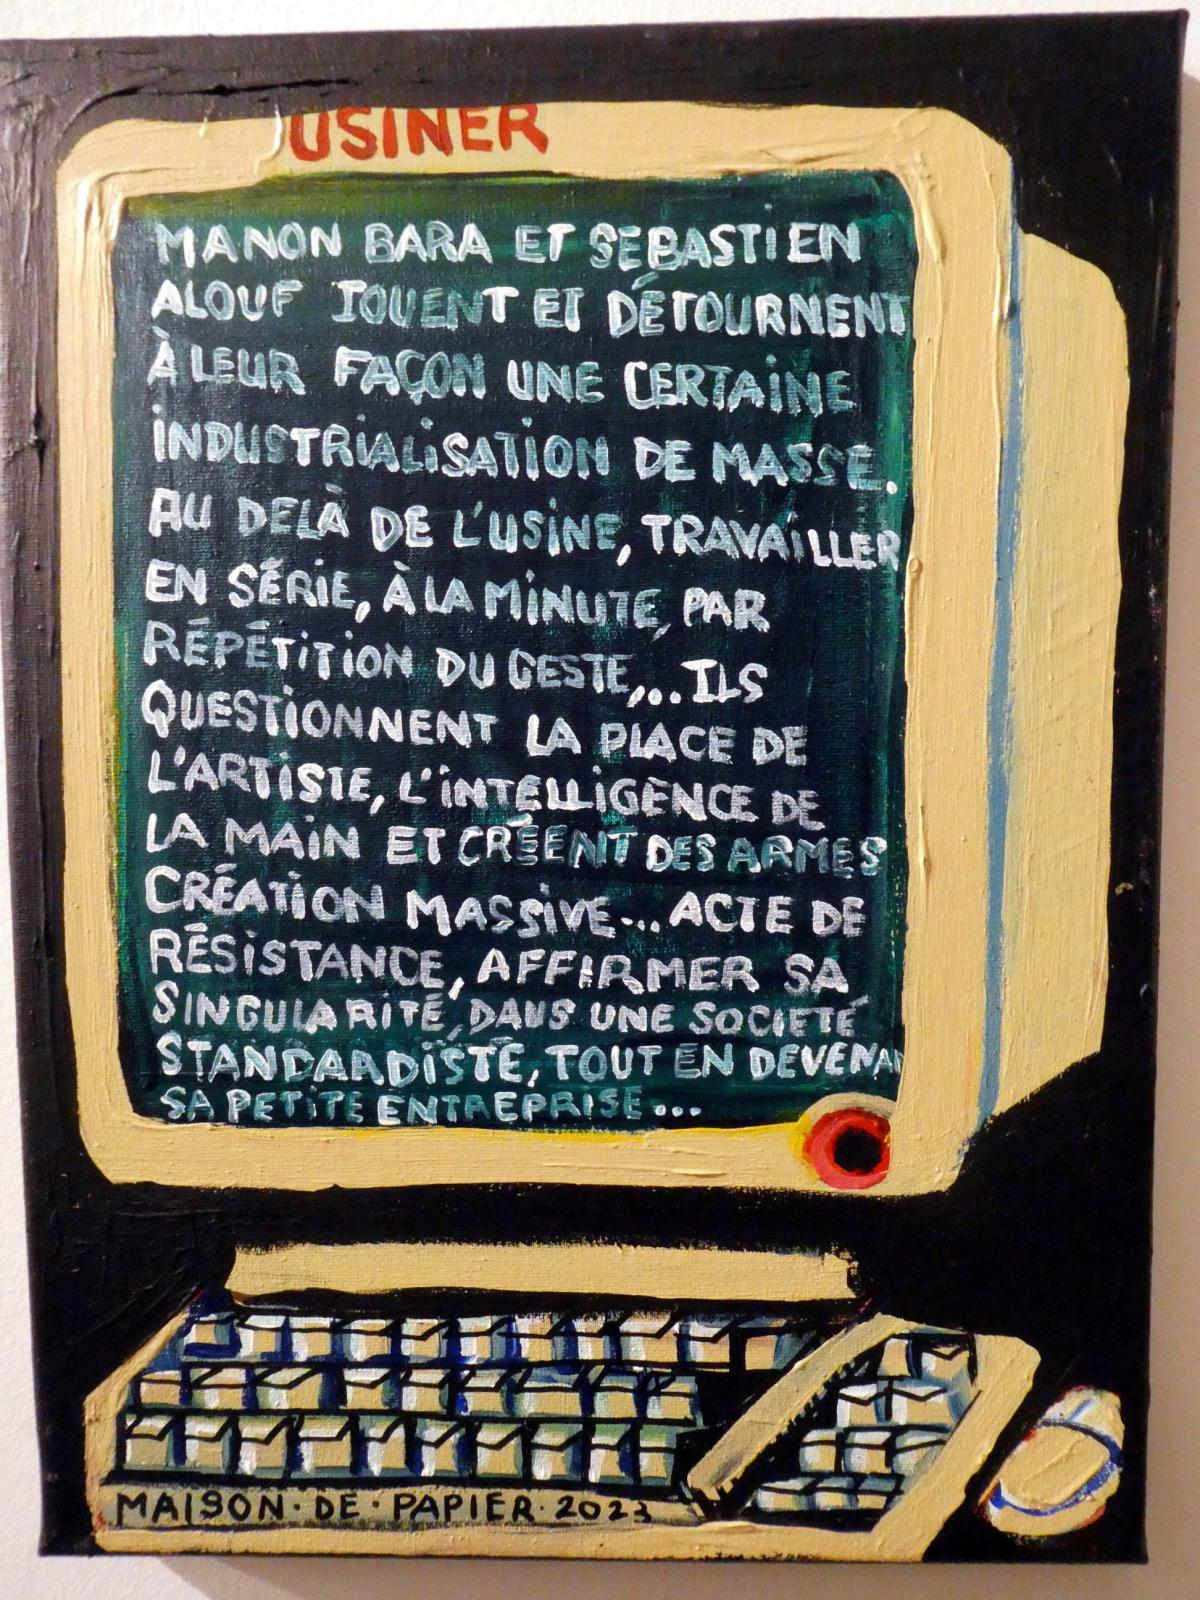 USINER
MANON BARA ET SÉBASTIEN
ALOUF JOUENT ET DÉTOURNENT
À LEUR FAÇON UNE CERTAINE
INDUSTRIALISATION DE MASSE.
AU DELÀ DE L'USINE, TRAVAILLER
EN SÉRIE, À LA MINUTE, PAR
RÉPÉTITION DU GESTE,... ILS
QUESTIONNENT LA PLACE DE
L'ARTISTE, L'INTELLIGENCE DE
LA MAIN ET CRÉENT DES ARMES
CRÉATION MASSIVE... ACTE DE
RÉSISTANCE, AFFIRMER SA
SINGULARITÉ, DANS UNE SOCIÉTÉ
STANDARDISTÉ, TOUT EN DEVENA
SA PETITE ENTREPRISE...
MAISON·DE·PAPIER·2023